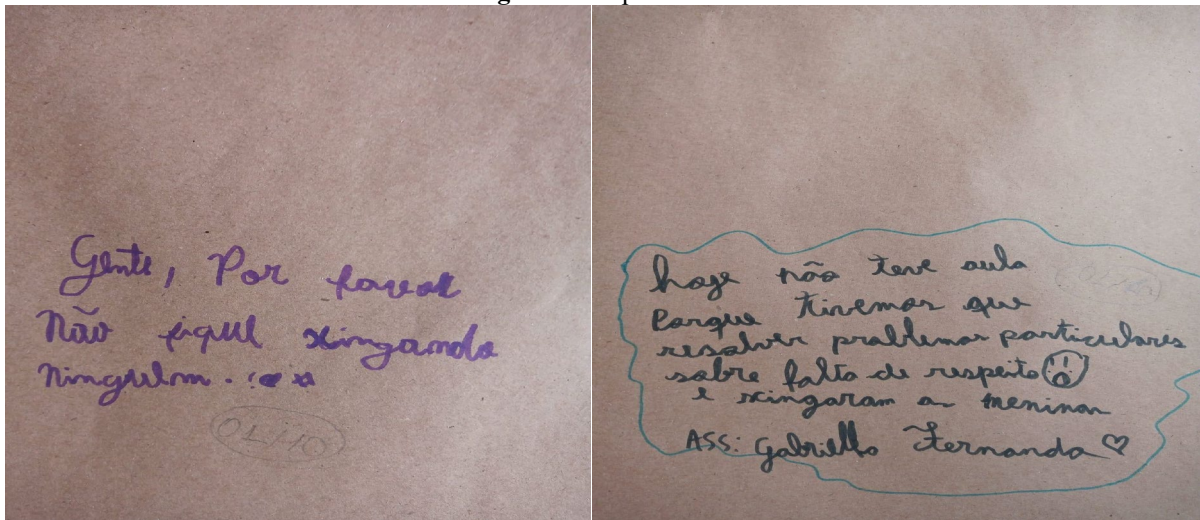 Gente, Por favor
Não fique xingando
ninguém.
01/10
hoje não teve aula
Porque tivemos que
resolver problemas particulares
sobre falta de respeito
e xingaram as meninas
ASS: Gabriella Fernanda